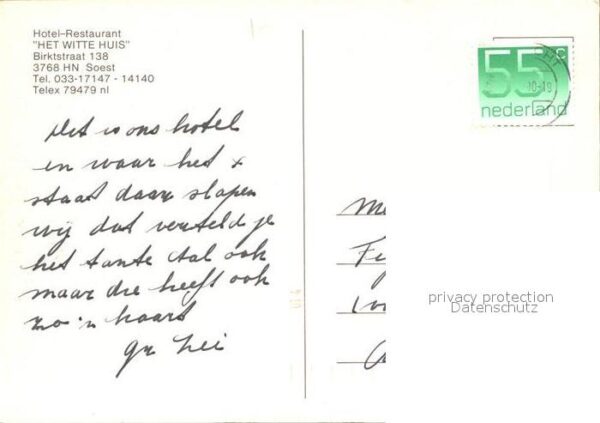 Hotel-Restaurant
"HET WITTE HUIS"
Birktstraat 138
3768 HN Soest
Tel. 033-17147 - 14140
Telex 79479 nl
55 c
nederland
Dit is ons hotel
en waar het x
staat daar slapen
wij dat verteld je
het tante Stal ook
maar die heeft ook
zo'n kaart
gr
privacy protection
Datenschutz